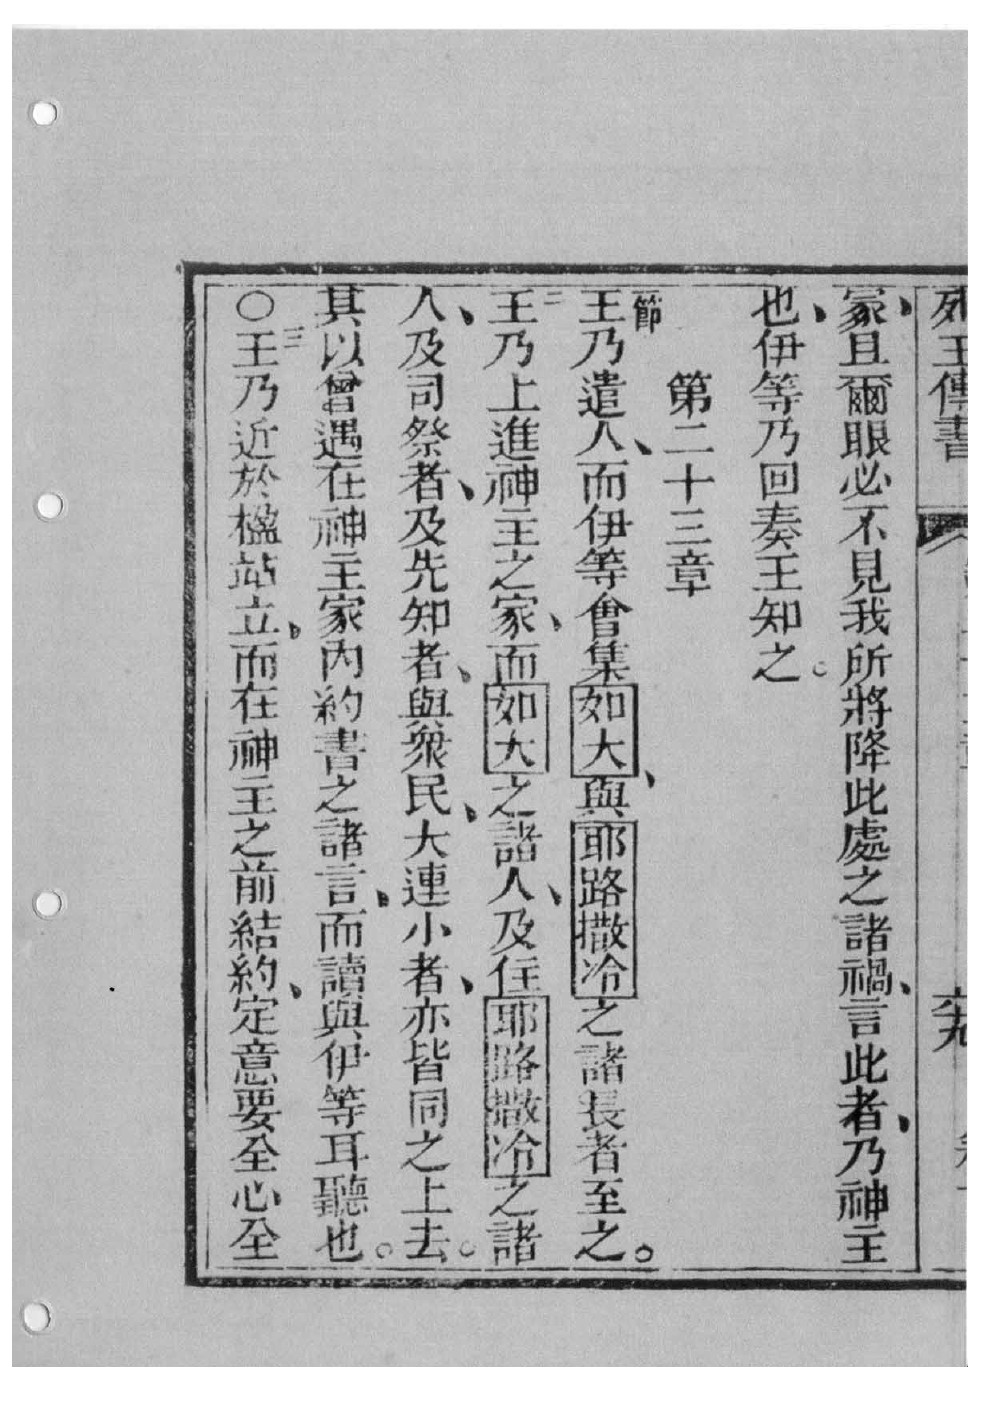 列王傳書
六十九
冢、且爾眼必不見我所將降此處之諸禍、言此者、乃神主
也、伊等乃回奏王知之。
第二十三章
一節王乃遣人、而伊等會集如大、與耶路撒冷之諸長者至之。
二王乃上進神主之家、而如大之諸人、及住耶路撒冷之諸
人、及司祭者、及先知者、與衆民、大連小者、亦皆同之上去。
其以曾遇在神主家內約書之諸言、而讀與伊等耳聽也。
〇三王乃近於楹站立、而在神主之前結約、定意要全心全